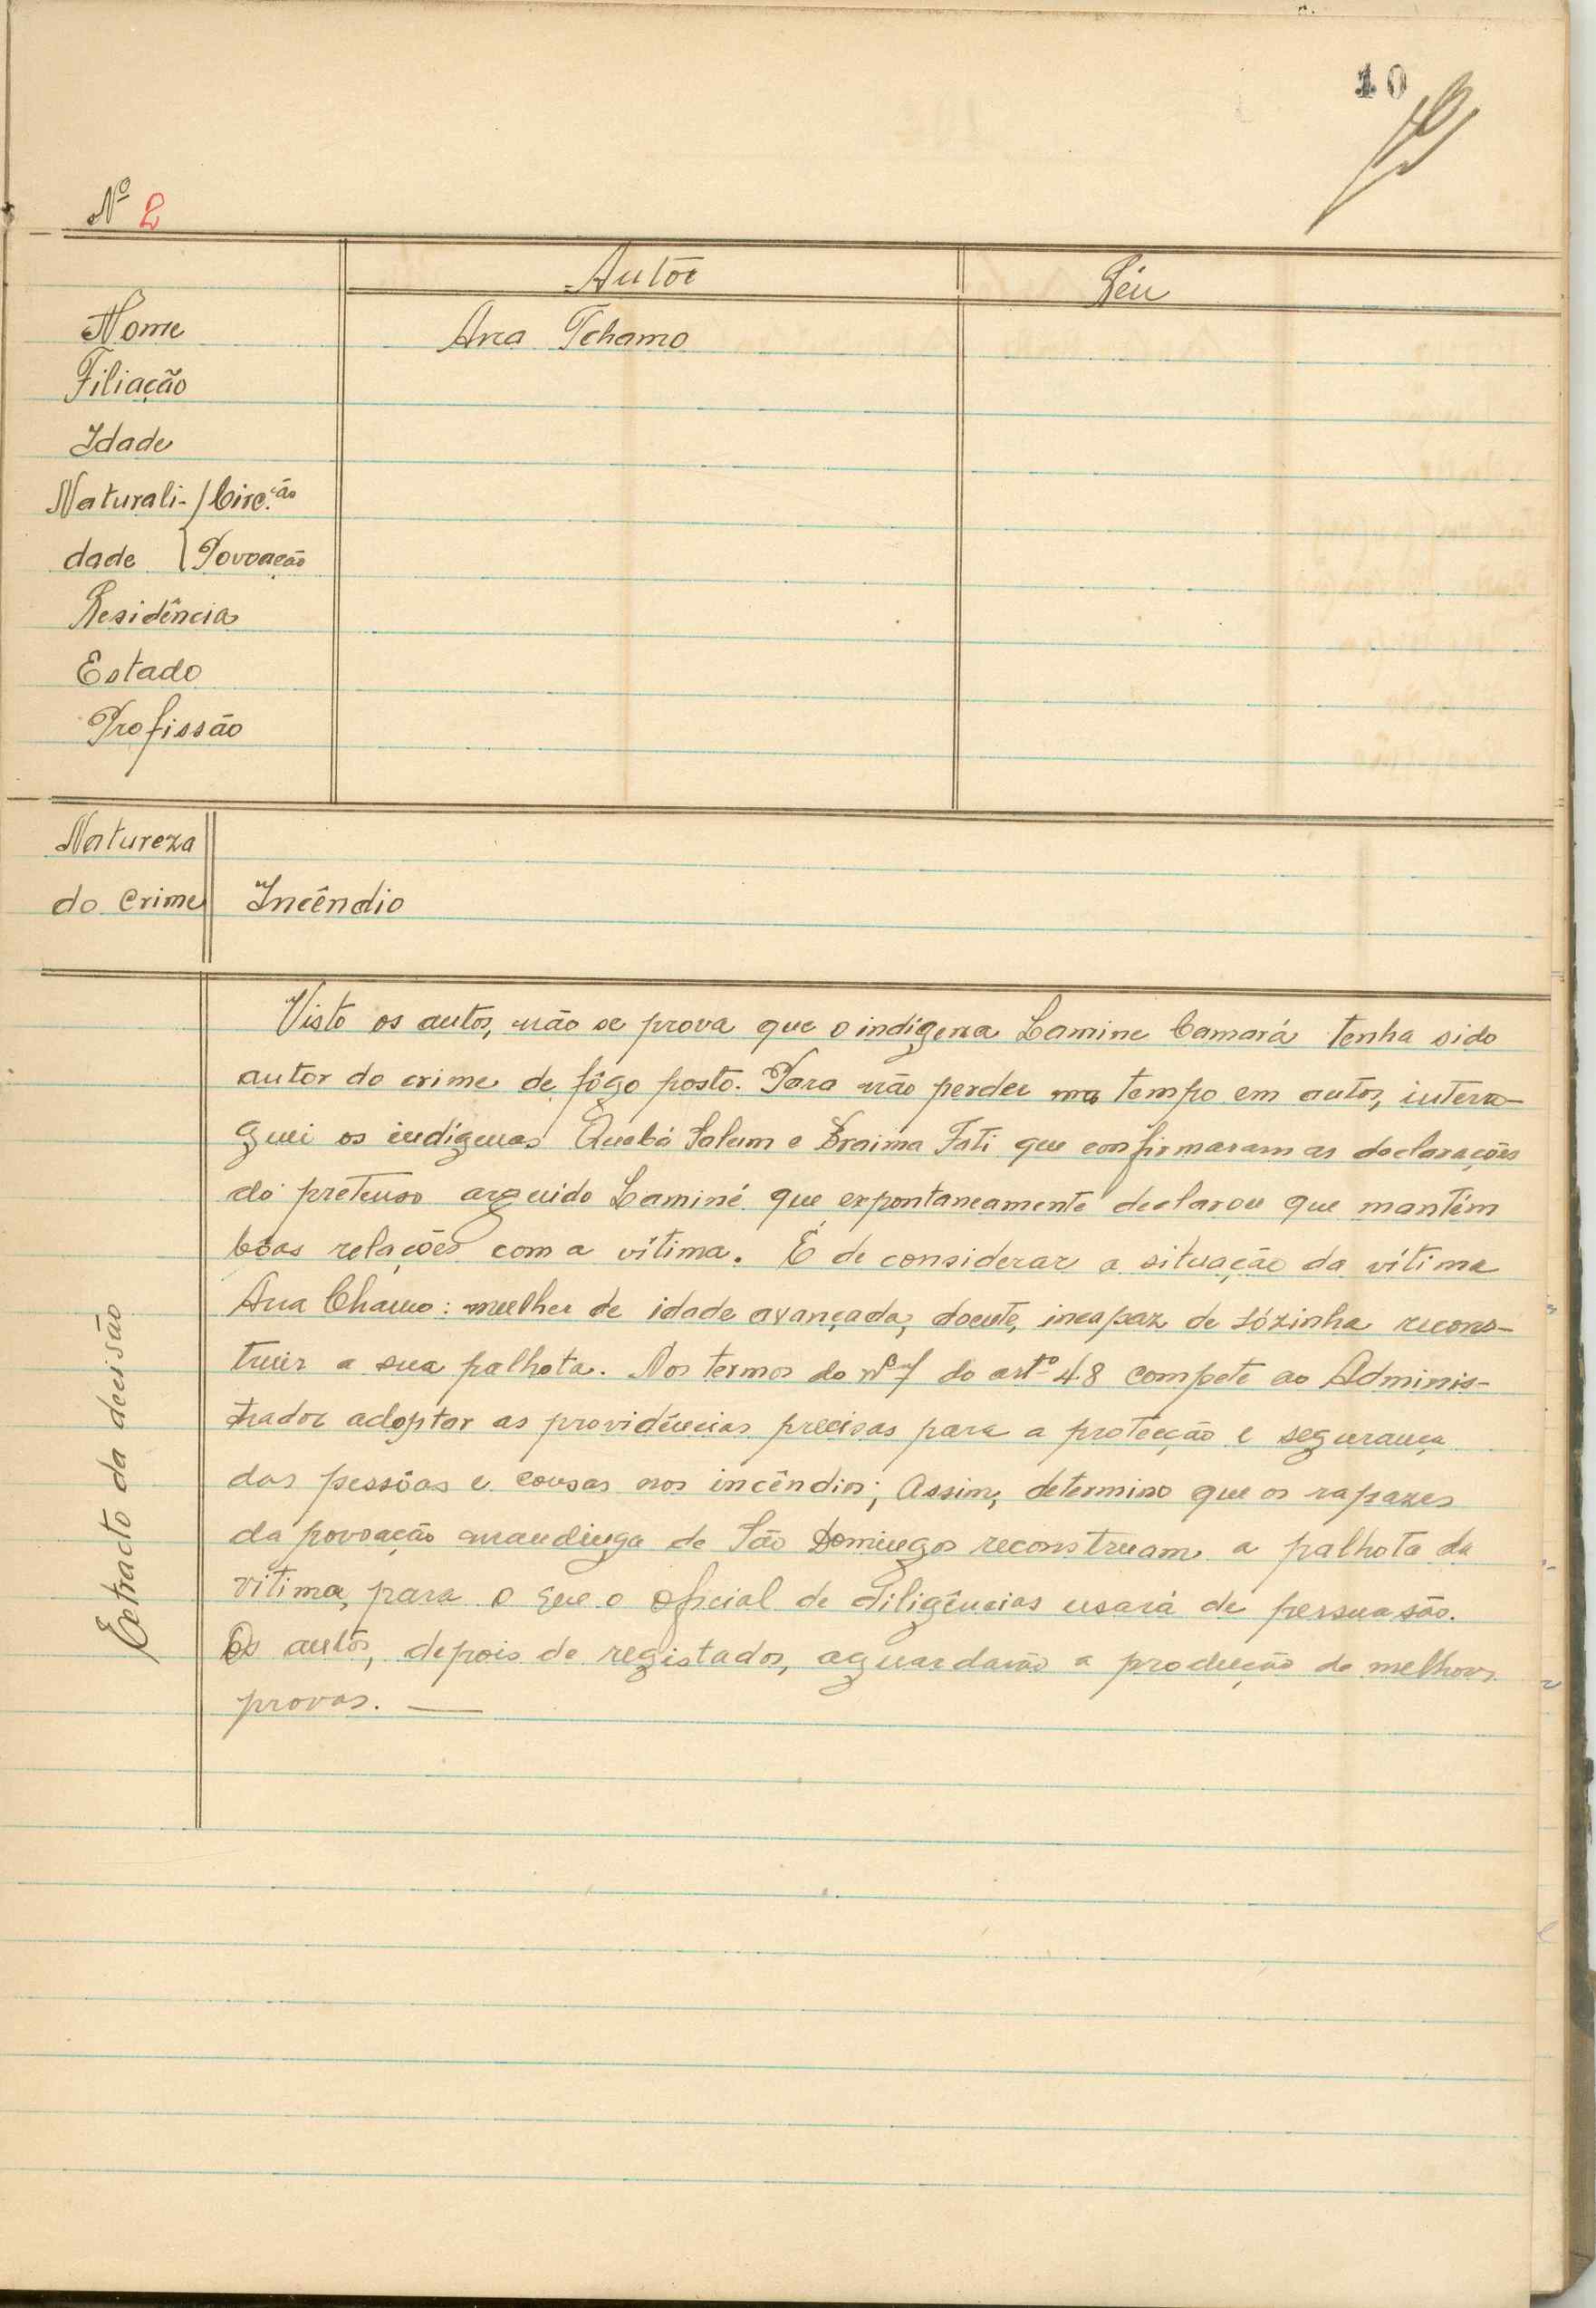 10
Nº 2
Autor
Réu
Nome
Ana Tchamo
Filiação
Idade
Naturali- / Circ.ção
dade { Povoação
Residência
Estado
Profissão
Natureza
do Crime
Incêndio
Extracto da decisão
Visto os autos, não se prova que o indígena Lamine Camará tenha sido
autor do crime de fôgo posto. Para não perder tempo em autos, interro-
guei os indígenas Quebá Salum e Braima Fati que confirmaram as declarações
do pretenso arguido Laminé que expontaneamente declarou que mantém
bôas relações com a vítima. É de considerar a situação da vítima
Ana Chamo: mulher de idade avançada, doente, incapaz de sózinha recons-
truir a sua palhota. Nos termos do nº do artº 48 compete ao Adminis-
trador adoptar as providências precisas para a protecção e segurança
das pessôas e cousas nos incêndios; Assim, determino que os rapazes
da povoação mandinga de São Domingos reconstruam a palhota da
vítima, para o que o oficial de diligências usará de persuasão.
Os autos, depois de registados, aguardarão a produção de melhores
provas. —